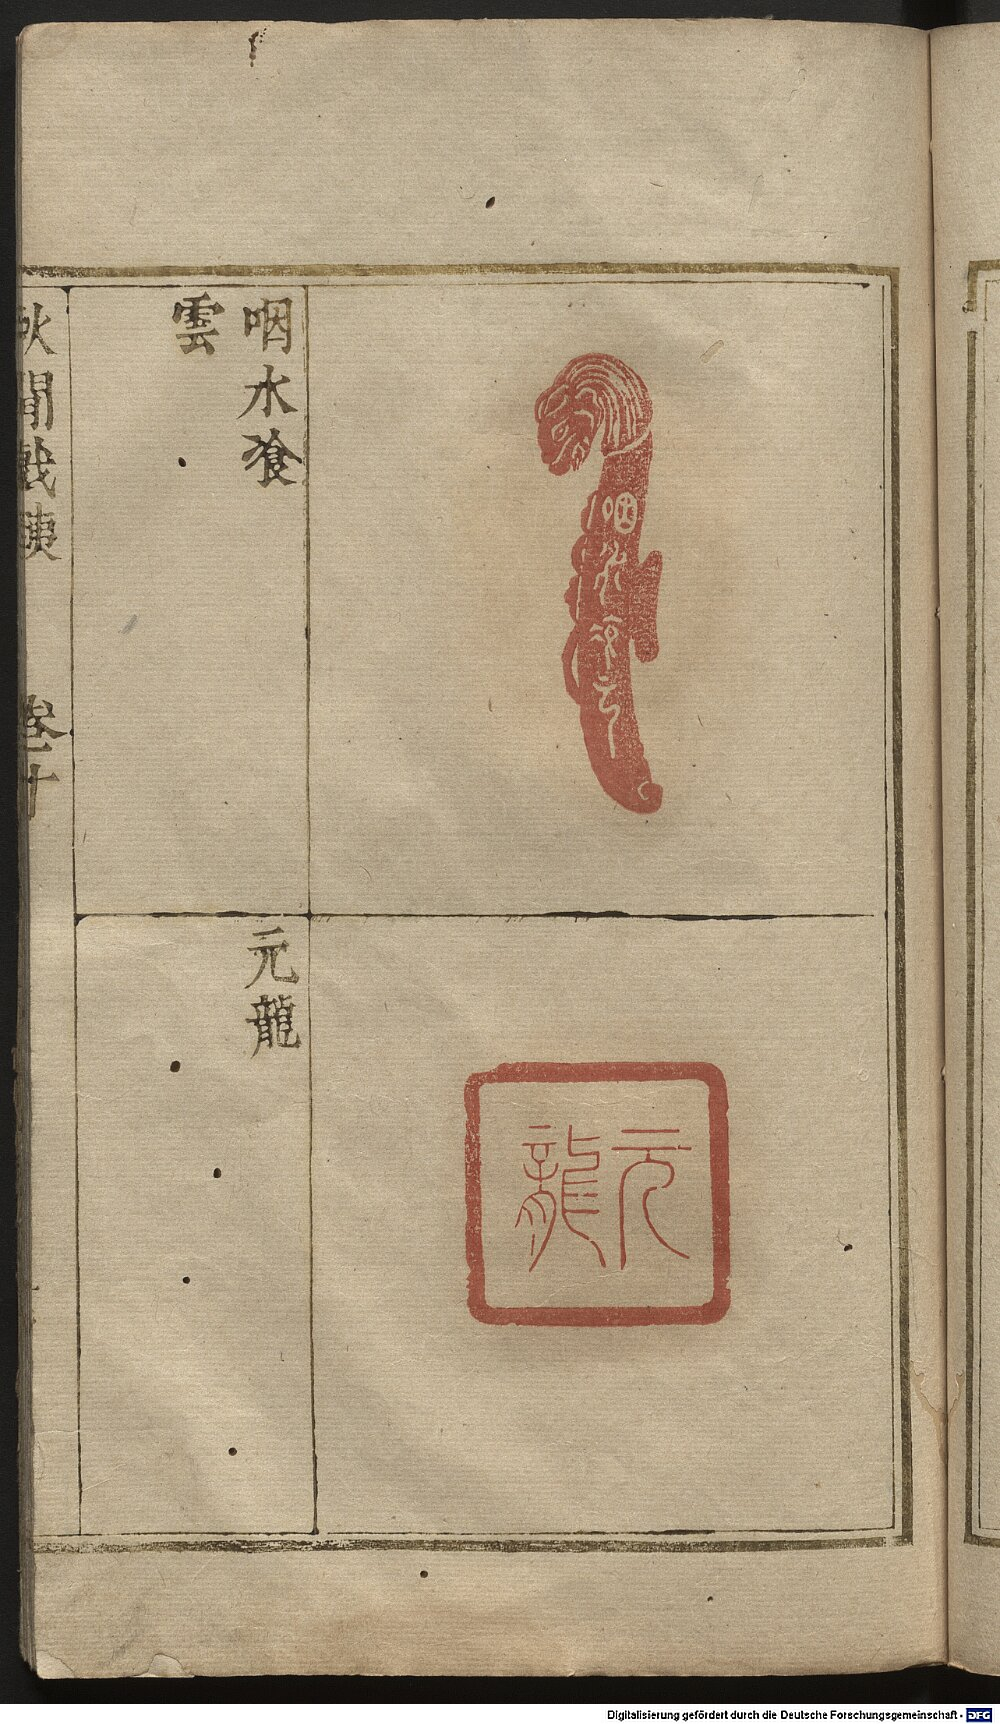 咽水飡
雲
元龍
咽水飡雲
元龍
秋閒戲銕
卷十
Digitalisierung gefördert durch die Deutsche Forschungsgemeinschaft - DFG